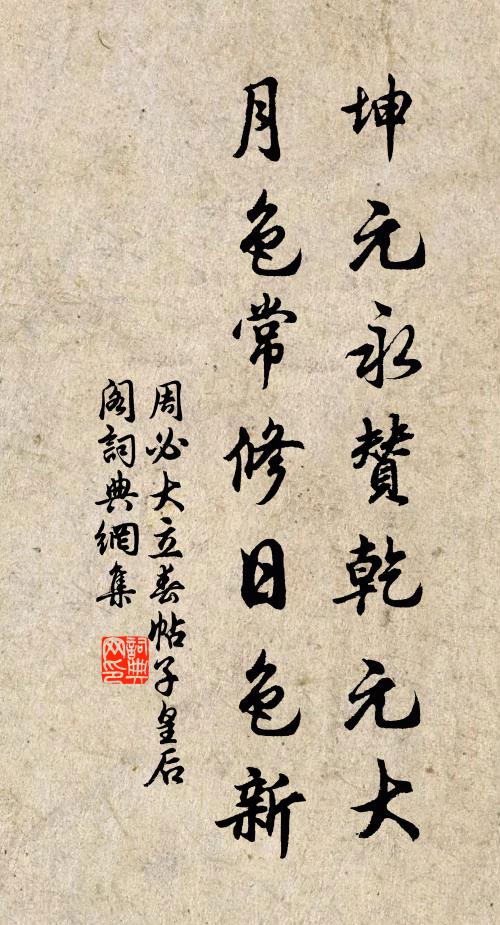 坤元永贊乾元大
月色常修日色新
周必大立春帖子皇后
阁詞典網集
詞典
网印